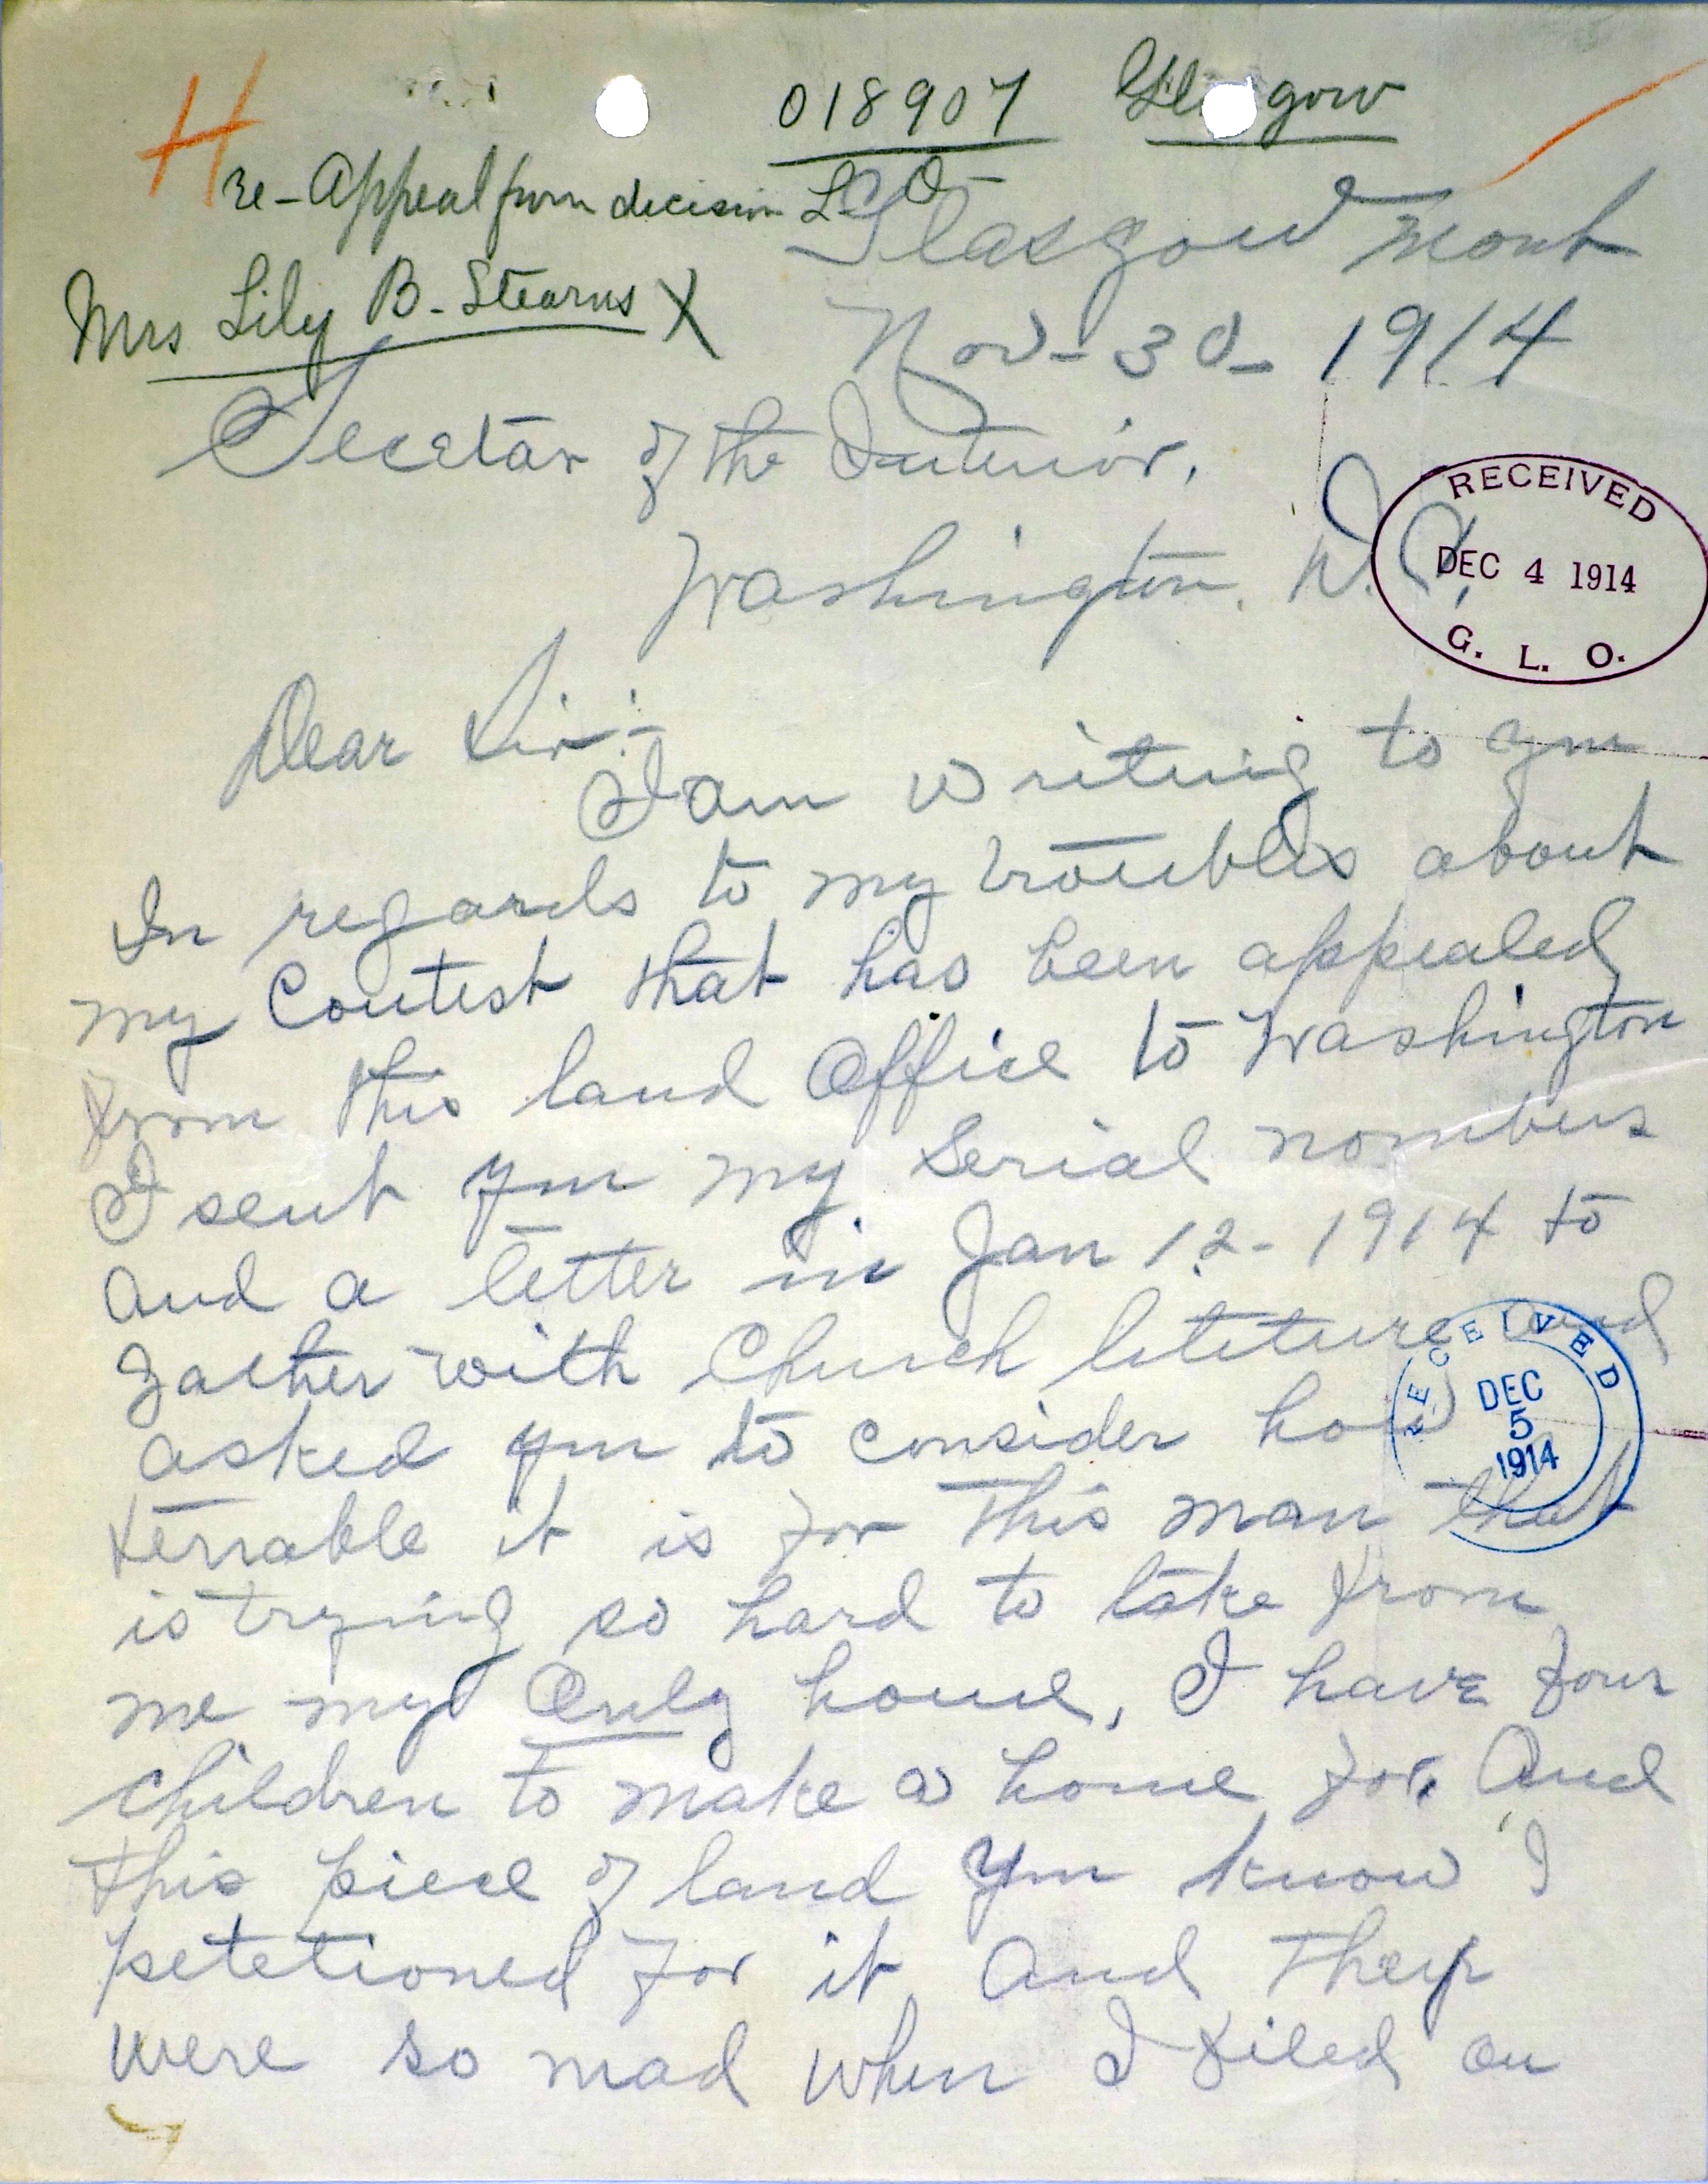 H
018907 Glasgow
re - Appeal from decision L O -
Mrs Lily B. Stearns X
Glasgow Mont
Nov - 30 - 1914
Secetar of the Interior,
Washington, D.C.
RECEIVED
DEC 4 1914
G. L. O.
Dear Sir:-
I am writing to you
In regards to my troubles about
my Contest that has been appealed
from this land Office to Washington
I sent you my Serial nombers
and a letter in Jan 12 - 1914 to
gather with Church liteture and
RECEIVED
DEC
5
1914
asked you to consider how
terrable it is for this man that
is trying so hard to take from
me my Only home, I have four
children to make a home for, And
this piece of land you know I
petetioned for it And they
were so mad when I filed on